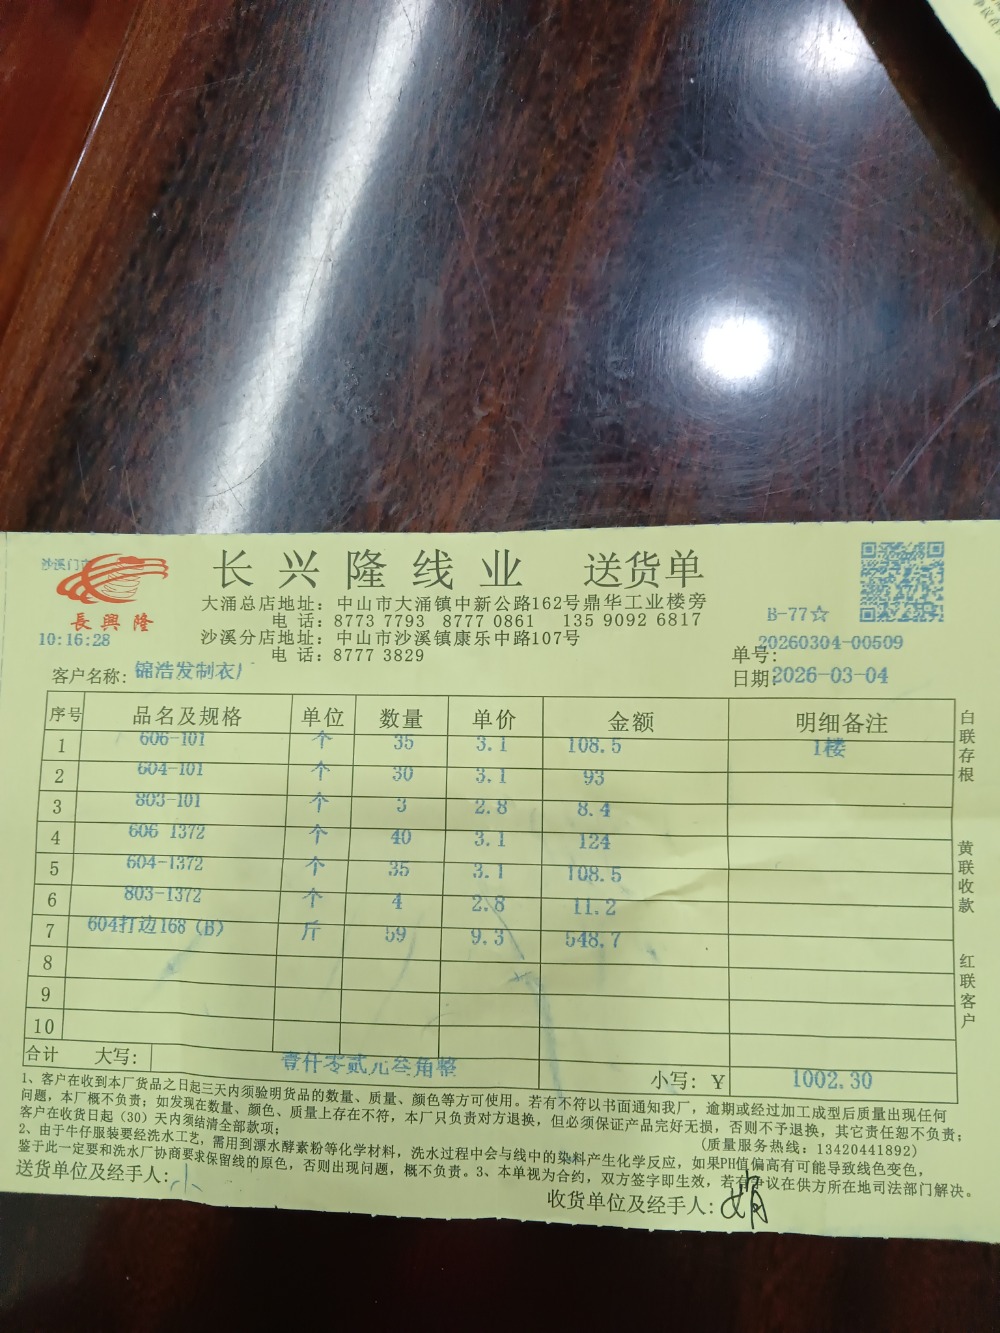 沙溪门市
長興隆
10:16:28
长兴隆线业 送货单
大涌总店地址：中山市大涌镇中新公路162号鼎华工业楼旁
电 话：8773 7793 8777 0861 135 9092 6817
沙溪分店地址：中山市沙溪镇康乐中路107号
电 话：8777 3829
B-77☆
单号：20260304-00509
客户名称：锦浩发制衣厂
日期：2026-03-04
序号 品名及规格 单位 数量 单价 金额 明细备注
1 606-101 个 35 3.1 108.5 1楼
2 604-101 个 30 3.1 93
3 803-101 个 3 2.8 8.4
4 606 1372 个 40 3.1 124
5 604-1372 个 35 3.1 108.5
6 803-1372 个 4 2.8 11.2
7 604打边168（B） 斤 59 9.3 548.7
8
9
10
合计 大写： 壹仟零贰元叁角整 小写：￥ 1002.30
白联存根
黄联收款
红联客户
1、客户在收到本厂货品之日起三天内须验明货品的数量、质量、颜色等方可使用。若有不符以书面通知我厂，逾期或经过加工成型后质量出现任何
问题，本厂概不负责；如发现在数量、颜色、质量上存在不符，本厂只负责对方退换，但必须保证产品完好无损，否则不予退换，其它责任恕不负责；
客户在收货日起（30）天内须结清全部款项； （质量服务热线：13420441892）
2、由于牛仔服装要经洗水工艺，需用到漂水酵素粉等化学材料，洗水过程中会与线中的染料产生化学反应，如果PH值偏高有可能导致线色变色，
鉴于此一定要和洗水厂协商要求保留线的原色，否则出现问题，概不负责。3、本单视为合约，双方签字即生效，若有争议在供方所在地司法部门解决。
送货单位及经手人：小
收货单位及经手人：娟